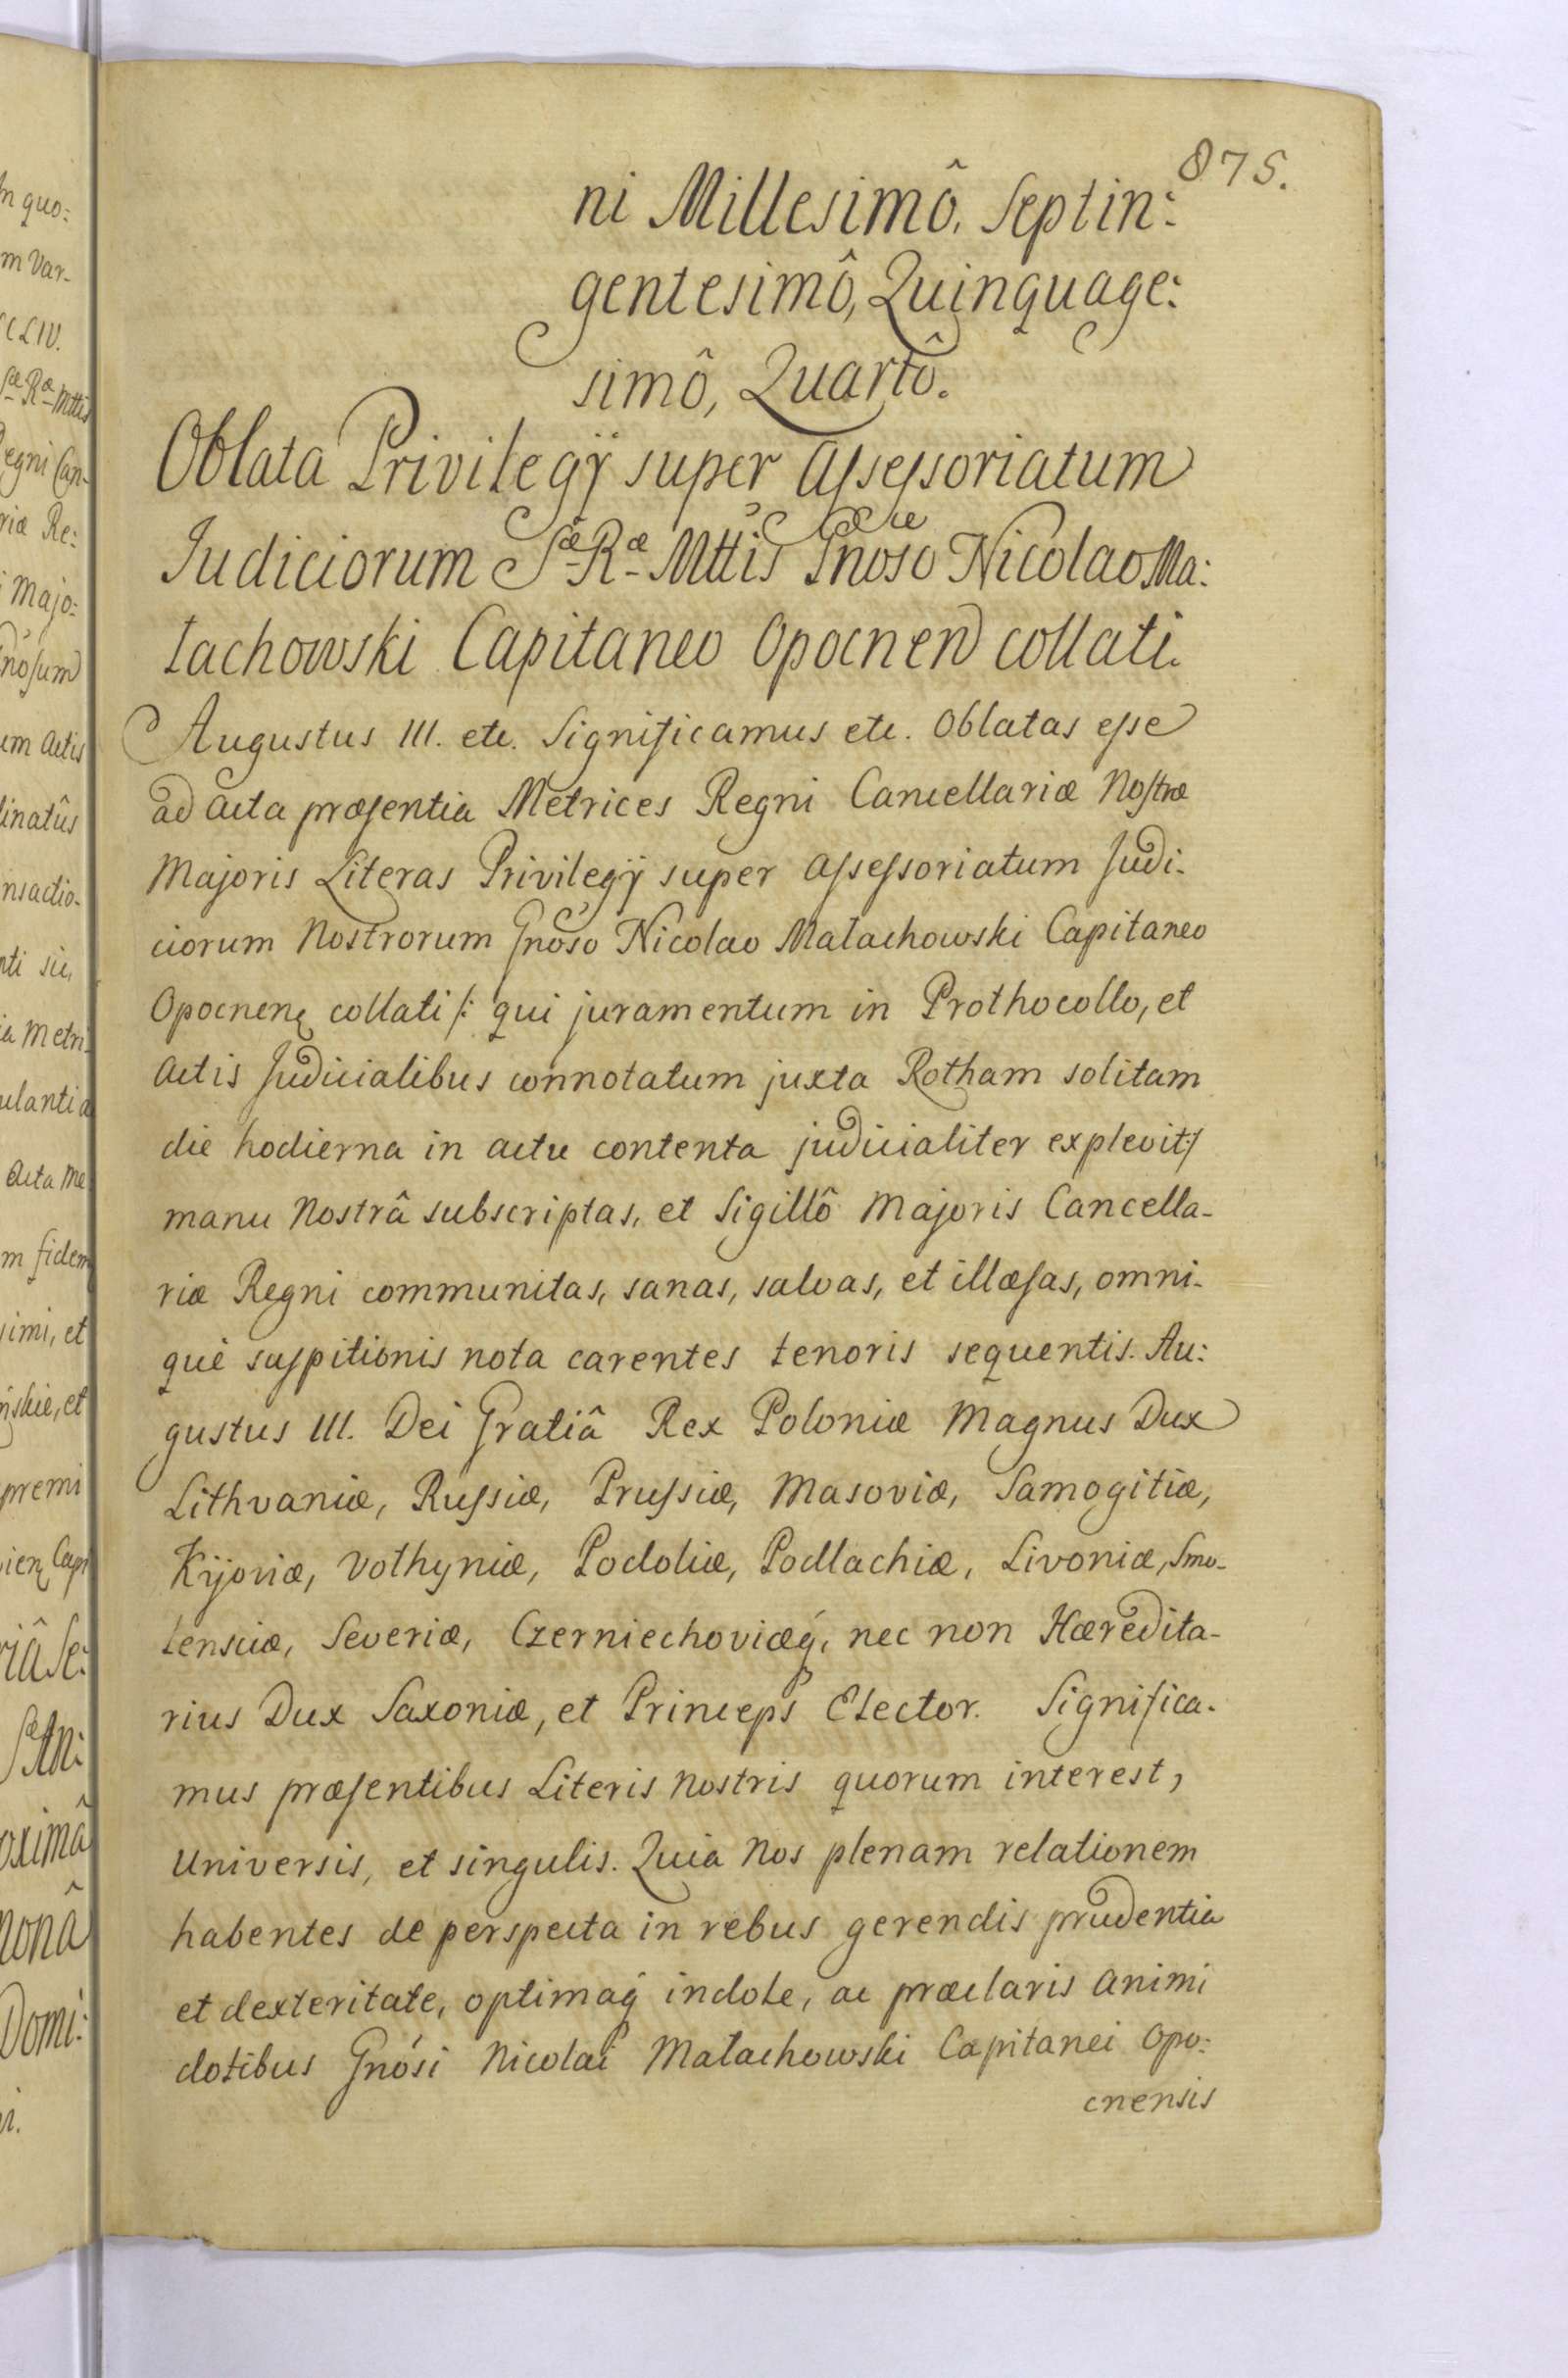 875.
ni Millesimô, Septin:
gentesimô, Quinquage:
simô, Quartô.
Oblata Privilegÿ super Assessoriatum
Judiciorum Sæ Ræ Mttis Gnoso Nicolao Ma:
łachowski Capitaneo Opocnen collati.
Augustus III. etc. Significamus etc. Oblatas esse
ad Acta præsentia Metrices Regni Cancellariæ Nostræ
Majoris Literas Privilegÿ super Assessoriatum Judi-
ciorum Nostrorum Gnoso Nicolao Małachowski Capitaneo
Opocnen collati /: qui juramentum in Prothocollo, et
Actis Judicialibus connotatum juxta Rotham solitam
die hodierna in actu contenta judicialiter explevit :/
manu Nostrâ subscriptas, et Sigillô Majoris Cancella-
riæ Regni communitas, sanas, salvas, et illæsas, omni-
què suspitionis nota carentes tenoris sequentis. Au:
gustus III. Dei Gratiâ Rex Poloniæ Magnus Dux
Lithvaniæ, Russiæ, Prussiæ, Masoviæ, Samogitiæ,
Kijoviæ, Volhyniæ, Podoliæ, Podlachiæ, Livoniæ, Smo-
lensciæ, Severiæ, Czerniechoviæq́, nec non Hæredita-
rius Dux Saxoniæ, et Princeps Elector. Significa-
mus præsentibus Literis nostris quorum interest,
Universis, et singulis. Quia Nos plenam relationem
habentes de perspecta in rebus gerendis prudentia
et dexteritate, optimaq́ indole, ac præclaris animi
dotibus Gnósi Nicolai Małachowski Capitanei Opo:
cnensis